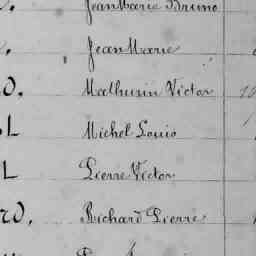 Jean Marie Bruno
Jean Marie
D. Mathurin Victor
L Michel Louis
L Pierre Victor
RD. Richard Pierre